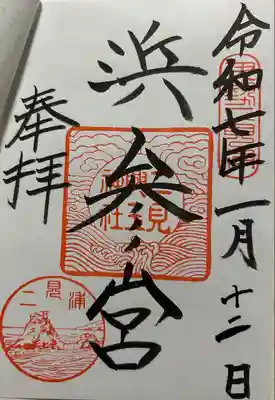 令和七年一月十二日
浜参宮
二見興玉神社
奉拝
二見浦